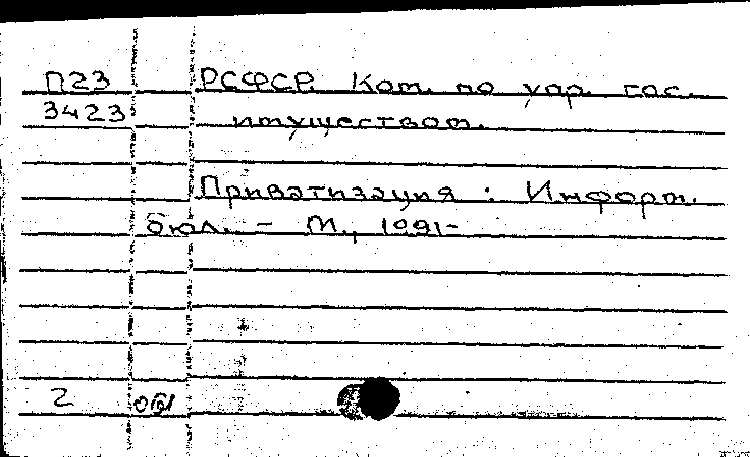 П23 РСФСР. Ком. по упр. гос.
3423 имуществом.
Приватизация : Информ.
бюл. - М., 1991-
2